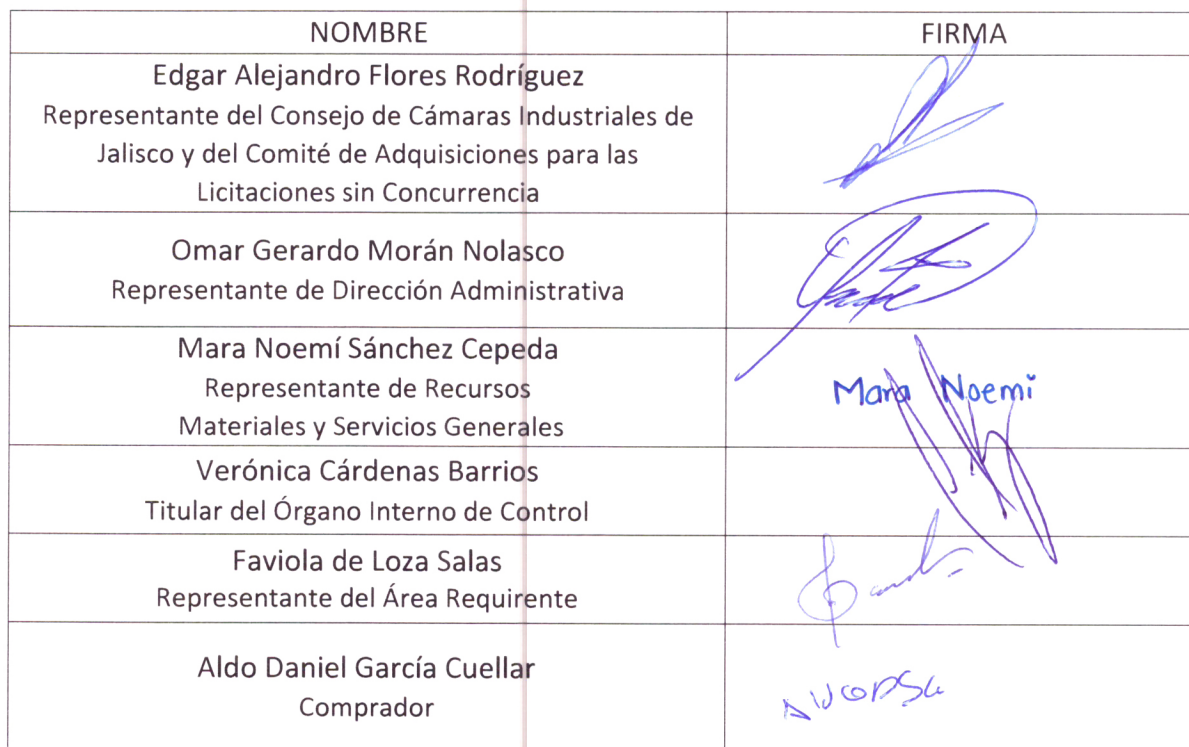 NOMBRE FIRMA
Edgar Alejandro Flores Rodríguez
Representante del Consejo de Cámaras Industriales de
Jalisco y del Comité de Adquisiciones para las
Licitaciones sin Concurrencia
Omar Gerardo Morán Nolasco
Representante de Dirección Administrativa
Mara Noemí Sánchez Cepeda
Representante de Recursos
Materiales y Servicios Generales
Mara Noemi
Verónica Cárdenas Barrios
Titular del Órgano Interno de Control
Faviola de Loza Salas
Representante del Área Requirente
Aldo Daniel García Cuellar
Comprador